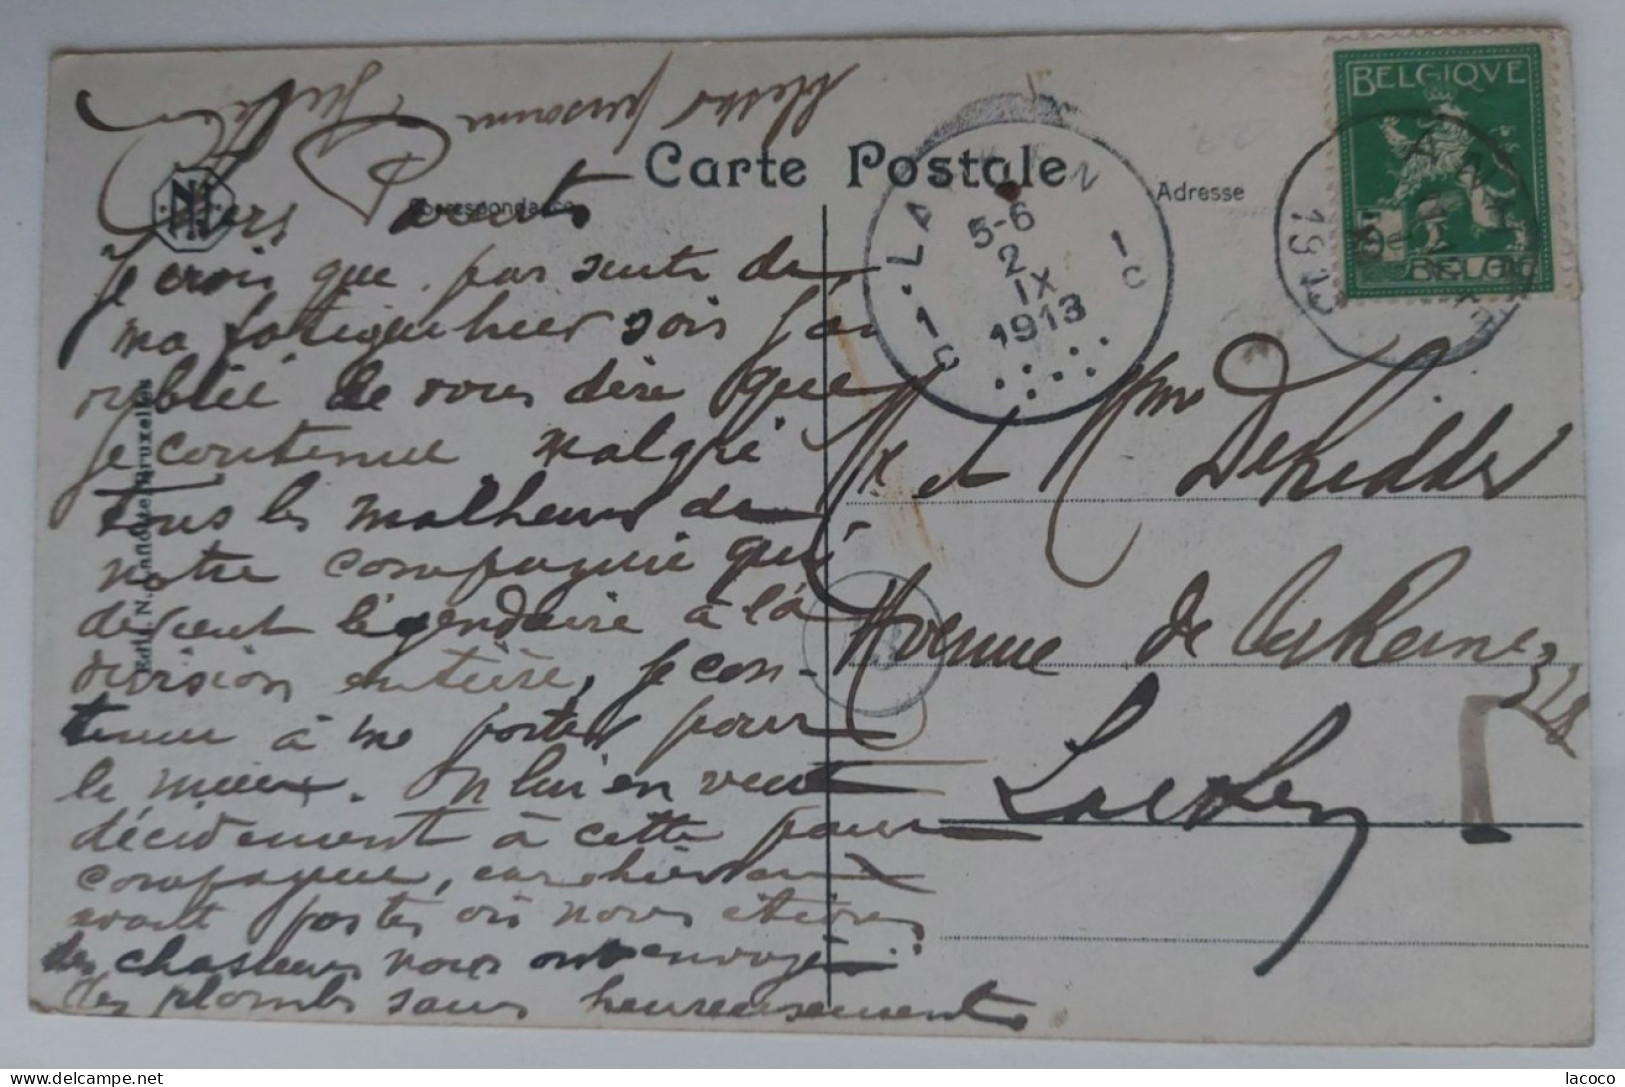 Carte Postale
Correspondance
Adresse
BELGIQVE
BELGIË
LAEKEN
1C
1C
5-6
2
IX
1913
1913
Edit. N. Bruxelles
Chers parents
Je crois que par suite de
ma fatigue hier soir j'ai
oublié de vous dire que
je continue malgré
tous les malheurs de
notre compagnie qui
devient légendaire à la
division entière, je con-
tinue à me porter pour
le mieux. On lui en veut
décidement à cette pauvre
compagnie, car hier au
avant postes où nous étions
des chasseurs nous ont envoyé
des plombs sans heureusement
blesser personne
M et Mme Deridder
Avenue de la Reine, 328
Laeken
lacoco